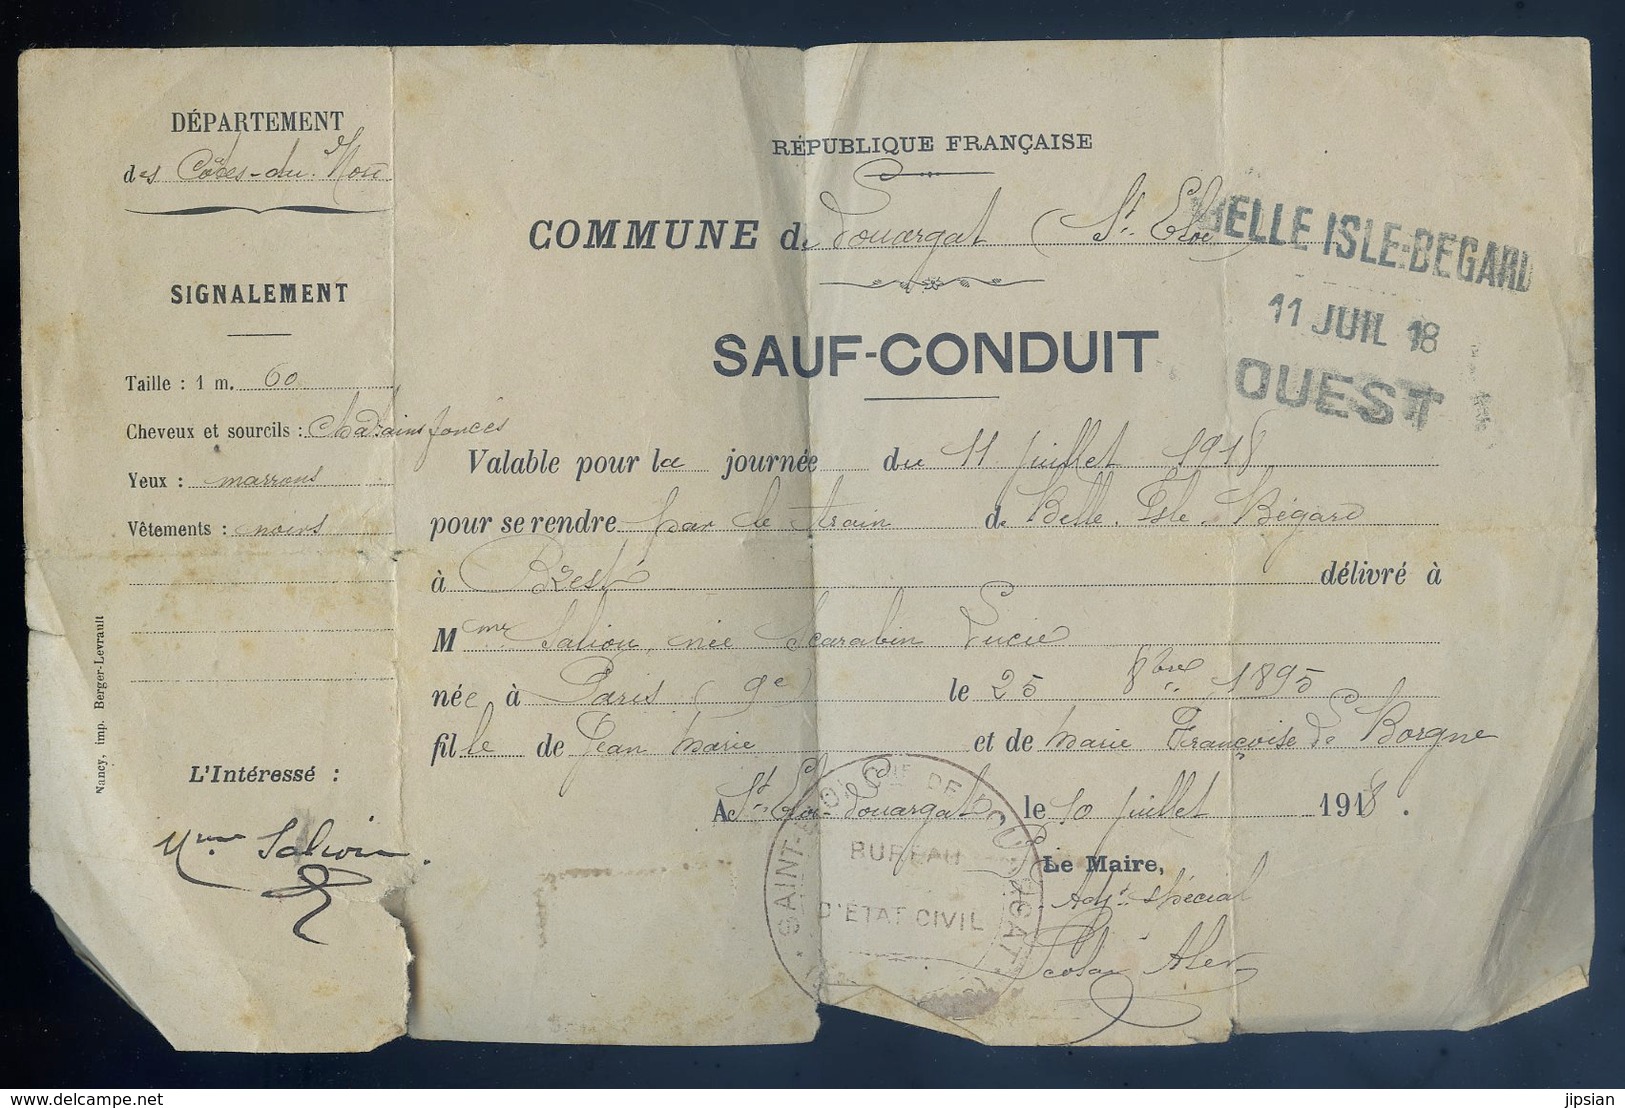 DÉPARTEMENT
des Côtes-du-Nord
SIGNALEMENT
Taille : 1 m. 60
Cheveux et sourcils : Chatains foncés
Yeux : marrons
Vêtements : noirs
Nancy, imp. Berger-Levrault
L'Intéressé :
Mme Saliou
RÉPUBLIQUE FRANÇAISE
COMMUNE de Louargat (St Eloi)
BELLE ISLE-BEGARD
11 JUIL 18
OUEST
SAUF-CONDUIT
Valable pour la journée du 11 juillet 1918
pour se rendre par le train de Belle-Isle-Bégard
à Brest délivré à
Mme Saliou, née Scarabin Lucie
née à Paris (9e) le 25 8bre 1895
fille de Jean Marie et de Marie Françoise Le Borgne
A St Eloi-Louargat le 10 juillet 1918.
SAINT-ELOI LOUARGAT
BUREAU
D'ETAT CIVIL
Le Maire,
Adjt spécial
jipsian
www.delcampe.net